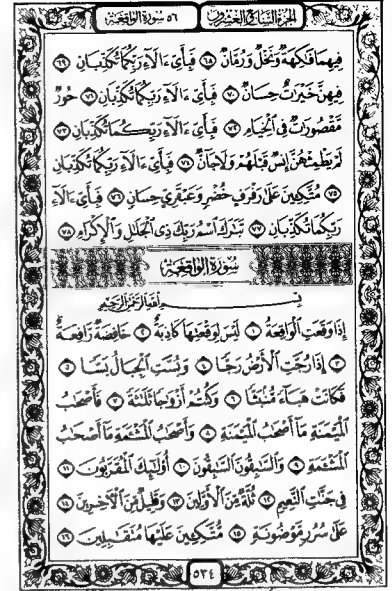 الجزء السابع والعشرون ٥٦ سورة الواقعة
فِيهِمَا فَٰكِهَةٌ وَنَخْلٌ وَرُمَّانٌ ٦٨ فَبِأَيِّ ءَالَآءِ رَبِّكُمَا تُكَذِّبَانِ ٦٩
فِيهِنَّ خَيْرَٰتٌ حِسَانٌ ٧٠ فَبِأَيِّ ءَالَآءِ رَبِّكُمَا تُكَذِّبَانِ ٧١ حُورٌ
مَّقْصُورَٰتٌ فِي الْخِيَامِ ٧٢ فَبِأَيِّ ءَالَآءِ رَبِّكُمَا تُكَذِّبَانِ ٧٣
لَمْ يَطْمِثْهُنَّ إِنسٌ قَبْلَهُمْ وَلَا جَانٌّ ٧٤ فَبِأَيِّ ءَالَآءِ رَبِّكُمَا تُكَذِّبَانِ
٧٥ مُتَّكِـِٔينَ عَلَىٰ رَفْرَفٍ خُضْرٍ وَعَبْقَرِيٍّ حِسَانٍ ٧٦ فَبِأَيِّ ءَالَآءِ
رَبِّكُمَا تُكَذِّبَانِ ٧٧ تَبَٰرَكَ ٱسْمُ رَبِّكَ ذِي ٱلْجَلَٰلِ وَٱلْإِكْرَامِ ٧٨
سورة الواقعة
بسم الله الرحمن الرحيم
إِذَا وَقَعَتِ ٱلْوَاقِعَةُ ١ لَيْسَ لِوَقْعَتِهَا كَاذِبَةٌ ٢ خَافِضَةٌ رَّافِعَةٌ
٣ إِذَا رُجَّتِ ٱلْأَرْضُ رَجًّا ٤ وَبُسَّتِ ٱلْجِبَالُ بَسًّا ٥
فَكَانَتْ هَبَآءً مُّنۢبَثًّا ٦ وَكُنتُمْ أَزْوَٰجًا ثَلَٰثَةً ٧ فَأَصْحَٰبُ
ٱلْمَيْمَنَةِ مَآ أَصْحَٰبُ ٱلْمَيْمَنَةِ ٨ وَأَصْحَٰبُ ٱلْمَشْـَٔمَةِ مَآ أَصْحَٰبُ
ٱلْمَشْـَٔمَةِ ٩ وَٱلسَّٰبِقُونَ ٱلسَّٰبِقُونَ ١٠ أُو۟لَٰٓئِكَ ٱلْمُقَرَّبُونَ ١١
فِي جَنَّٰتِ ٱلنَّعِيمِ ١٢ ثُلَّةٌ مِّنَ ٱلْأَوَّلِينَ ١٣ وَقَلِيلٌ مِّنَ ٱلْـَٔاخِرِينَ ١٤
عَلَىٰ سُرُرٍ مَّوْضُونَةٍ ١٥ مُّتَّكِـِٔينَ عَلَيْهَا مُتَقَٰبِلِينَ ١٦
٥٣٤